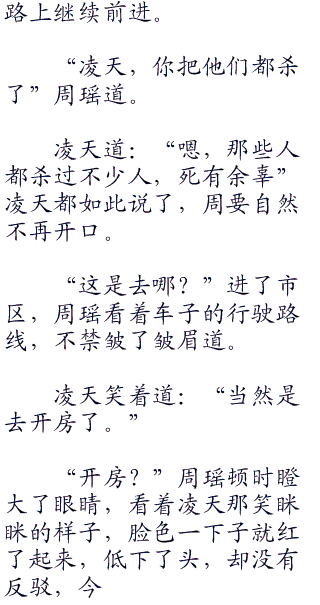 路上继续前进。
“凌天，你把他们都杀
了”周瑶道。
凌天道：“嗯，那些人
都杀过不少人，死有余辜”
凌天都如此说了，周要自然
不再开口。
“这是去哪？”进了市
区，周瑶看着车子的行驶路
线，不禁皱了皱眉道。
凌天笑着道：“当然是
去开房了。”
“开房？”周瑶顿时瞪
大了眼睛，看着凌天那笑眯
眯的样子，脸色一下子就红
了起来，低下了头，却没有
反驳，今